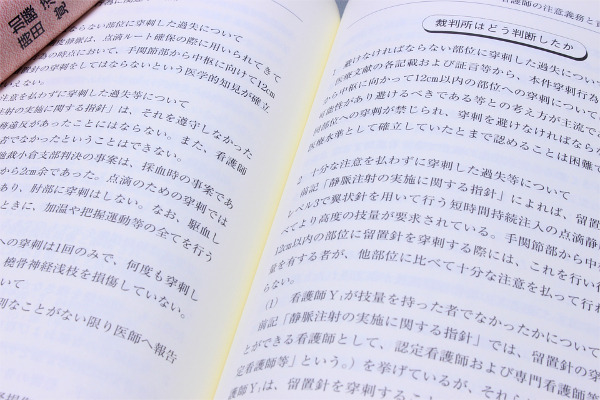 加藤
橋田
部位に穿刺した過失について
静脈は、点滴ルート確保の際に用いられてきて
の時点において、手関節部から中枢に向けて12cm
置針の穿刺をしてはならないという医学的知見が確立
ない。
注意を払わずに穿刺した過失等について
注射の実施に関する指針」は、それを遵守しなかった
務違反があったことにはならない。また、看護師
者でなかったということはない。
地裁小倉支部判決の事案は、採血時の事案であ
から2cm余であった。点滴のための穿刺では
あり、肘部に穿刺はしない。なお、駆血し
ときに、加温や把握運動等の全てを行う
への穿刺は1回のみで、何度も穿刺し
、橈骨神経浅枝を損傷していない。
いて
別なことがない限り医師へ報告
護師の注意義務と
裁判所はどう判断したか
1 避けなければならない部位に穿刺した過失につい
医療文献の各記載および証言等から、本件穿刺行為
から中枢に向かって12cm以内の部位への穿刺について
可能性があり避けるべきである等との考え方が主流で
同部位への穿刺が禁じられ、穿刺を避けなければなら
医療水準として確立していたとまで認めることは困難
2 十分な注意を払わずに穿刺した過失等について
前記「静脈注射の実施に関する指針」によれば、留置
レベル3で翼状針を用いて行う短時間持続注入の点滴静
べてより高度の技量が要求されている。手関節部から中
12cm以内の部位に留置針を穿刺する際には、これを行い
量を有する者が、他部位に比べて十分な注意を払って行
らない。
(1) 看護師Y₁が技量を持った者でなかったかについて
前記「静脈注射の実施に関する指針」では、留置針の穿
とができる看護師として、認定看護師および専門看護師
定看護師等」という。）を挙げているが、それら
護師Y₁は、留置針を穿刺するこ